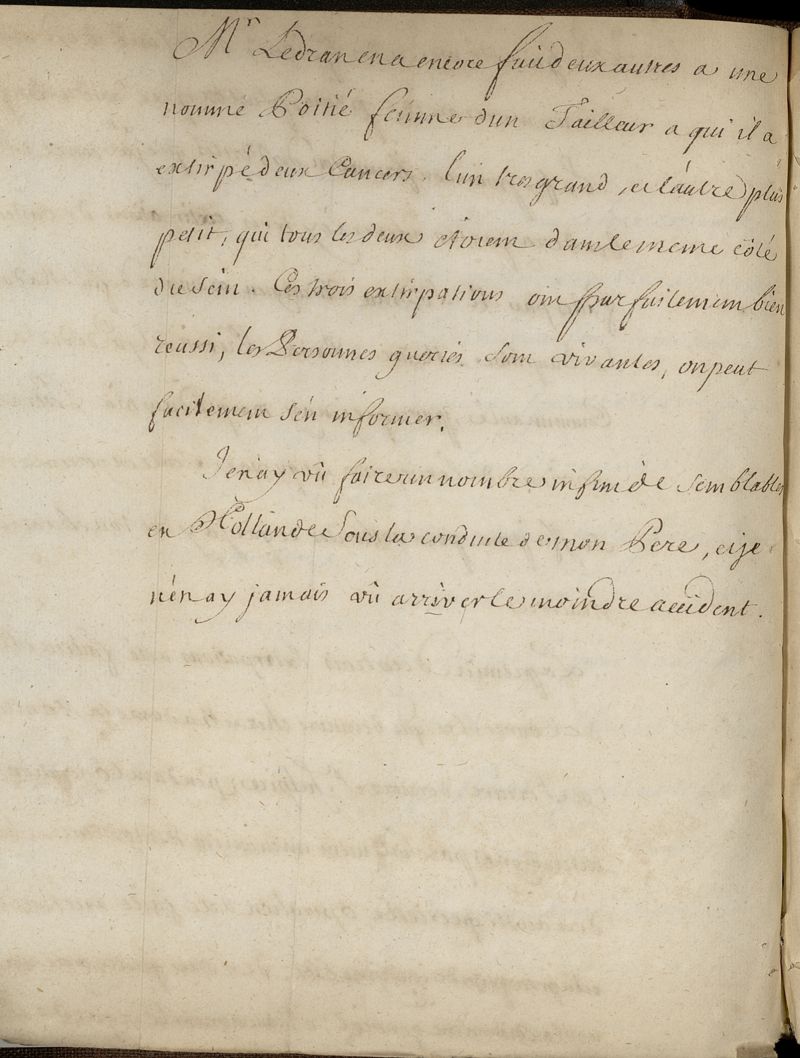 Mr Ledran en a encore fait deux autres a une
nommé Poitié femme d'un Tailleur a qui il a
extirpé deux Cancers. l'un tres grand, et l'autre plus
petit, qui tous les deux étoient dans le meme côté
du sein. Ces trois extirpations ont parfaitement bien
reussi, les Personnes gueries sont vivantes, on peut
facilement s'en informer.
J'en ay vû faire un nombre infini de semblables
en Hollande sous la conduite de mon Pere, et je
n'en ay jamais vû arriver le moindre accident.